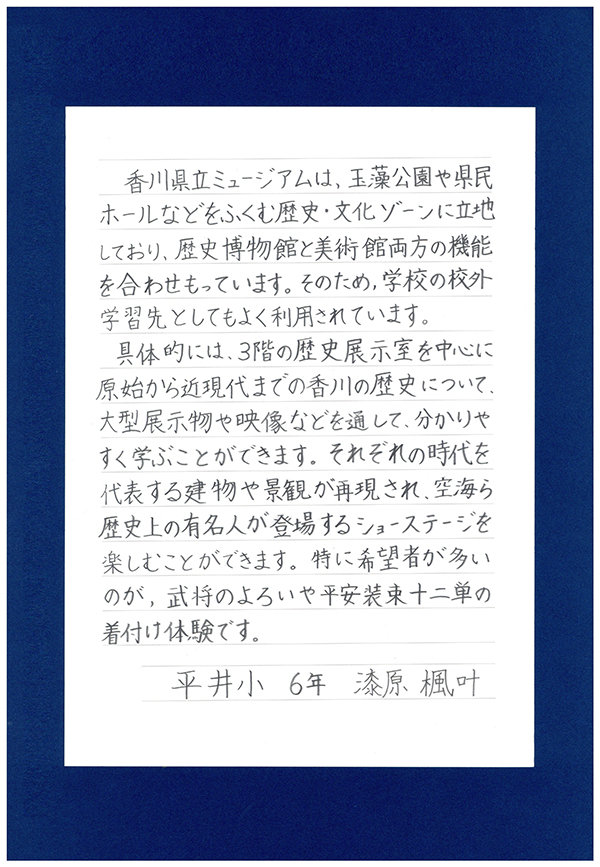 香川県立ミュージアムは、玉藻公園や県民
ホールなどをふくむ歴史・文化ゾーンに立地
しており、歴史博物館と美術館両方の機能
を合わせもっています。そのため,学校の校外
学習先としてもよく利用されています。
具体的には、3階の歴史展示室を中心に
原始から近現代までの香川の歴史について、
大型展示物や映像などを通して、分かりや
すく学ぶことができます。それぞれの時代を
代表する建物や景観が再現され、空海ら
歴史上の有名人が登場するショーステージを
楽しむことができます。特に希望者が多い
のが,武将のよろいや平安装束十二単の
着付け体験です。
平井小 6年 漆原 楓叶